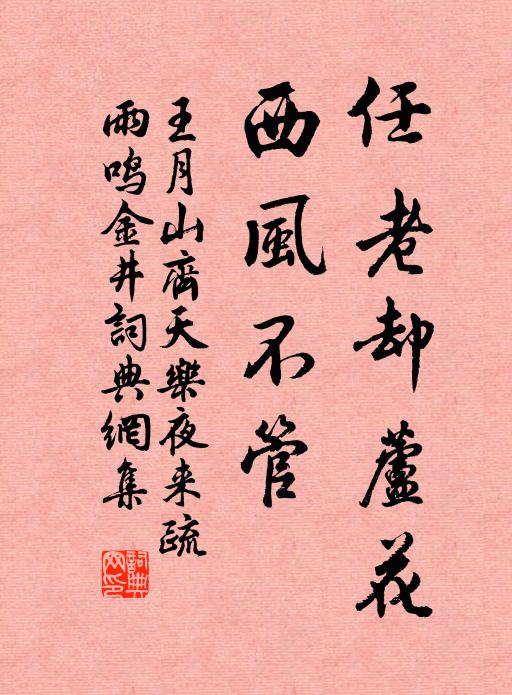 任老却蘆花
西風不管
王月山齊天樂夜来疏
雨鳴金井詞典網集
詞典
网印